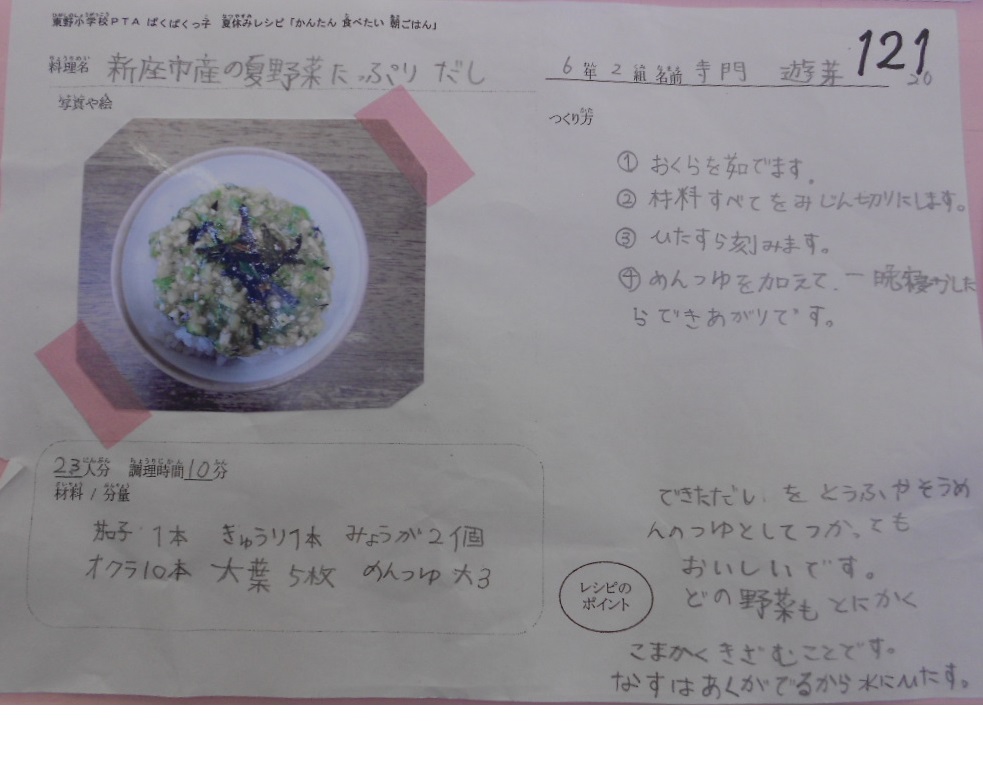 東野小学校PTA ぱくぱくっ子 夏休みレシピ「かんたん 食べたい 朝ごはん」
料理名 新座市産の夏野菜たっぷり だし
6年2組 名前 寺門 遊芽
121
20
写真や絵
つくり方
① おくらを茹でます.
② 材料すべてをみじん切りにします。
③ ひたすら刻みます。
④ めんつゆを加えて、一晩寝かした
らできあがりです。
23人分 調理時間10分
材料/分量
茄子 1本 きゅうり1本 みょうが2個
オクラ10本 大葉 5枚 めんつゆ 大3
レシピの
ポイント
できただし を とうふやそうめ
んのつゆとしてつかっても
おいしいです。
どの野菜もとにかく
こまかくきざむことです。
なすはあくがでるから水にひたす。